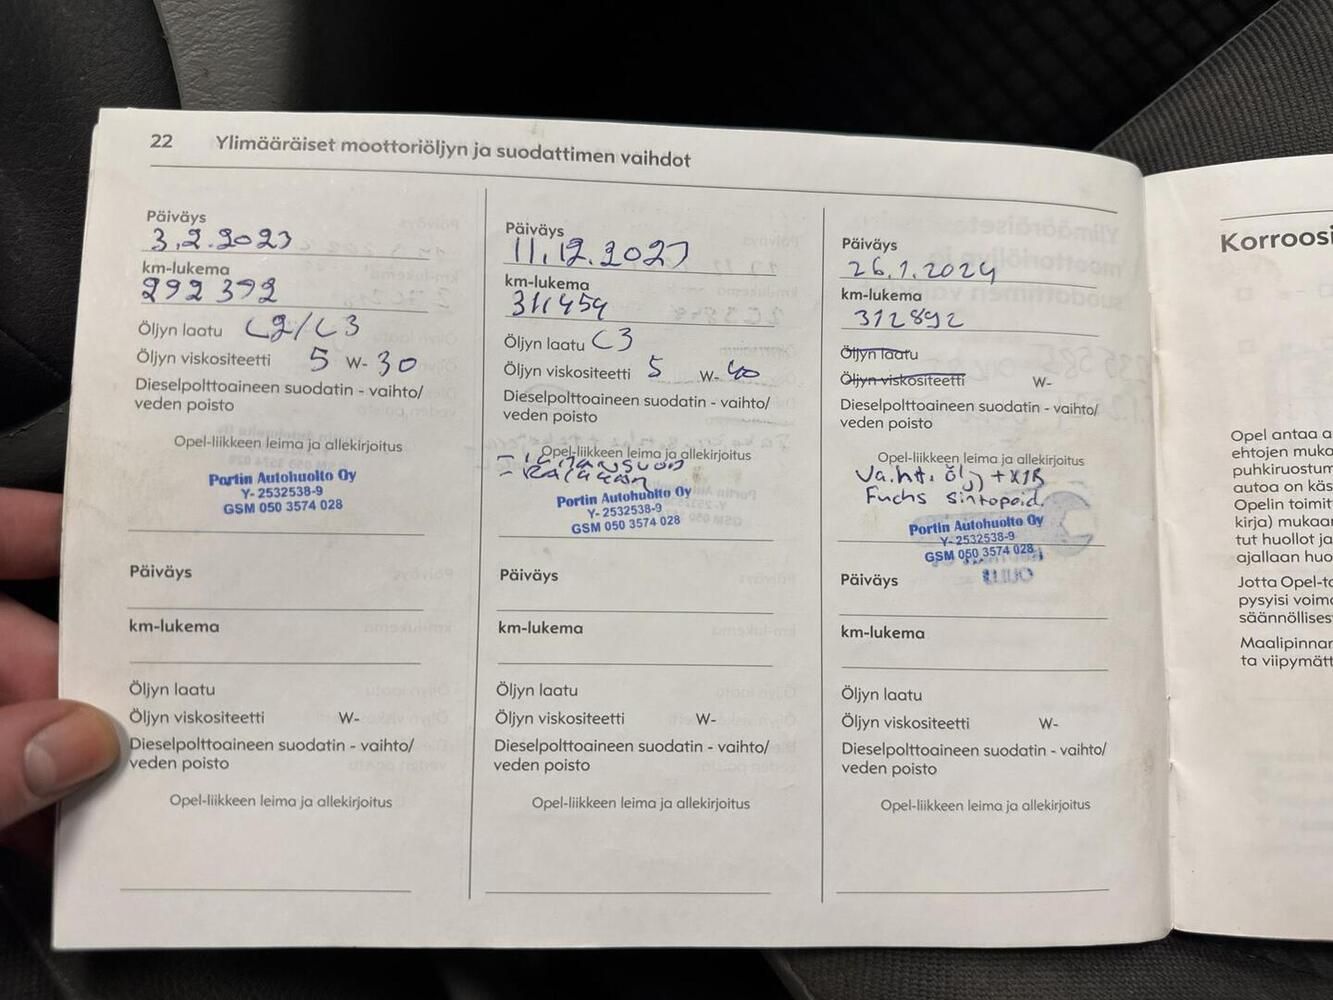 22 Ylimääräiset moottoriöljyn ja suodattimen vaihdot
Päiväys
3.2.2023
km-lukema
292 392
Öljyn laatu C2/C3
Öljyn viskositeetti 5 W- 30
Dieselpolttoaineen suodatin - vaihto/
veden poisto
Opel-liikkeen leima ja allekirjoitus
Portin Autohuolto Oy
Y- 2532538-9
GSM 050 3574 028
Päiväys
km-lukema
Öljyn laatu
Öljyn viskositeetti W-
Dieselpolttoaineen suodatin - vaihto/
veden poisto
Opel-liikkeen leima ja allekirjoitus
Päiväys
11.12.2023
km-lukema
311454
Öljyn laatu C3
Öljyn viskositeetti 5 W- 40
Dieselpolttoaineen suodatin - vaihto/
veden poisto
Opel-liikkeen leima ja allekirjoitus
Portin Autohuolto Oy
Y- 2532538-9
GSM 050 3574 028
Päiväys
km-lukema
Öljyn laatu
Öljyn viskositeetti W-
Dieselpolttoaineen suodatin - vaihto/
veden poisto
Opel-liikkeen leima ja allekirjoitus
Päiväys
26.1.2024
km-lukema
312892
Öljyn laatu
Öljyn viskositeetti W-
Dieselpolttoaineen suodatin - vaihto/
veden poisto
Opel-liikkeen leima ja allekirjoitus
Vaiht. öljy + X1R
Fuchs sintopoid.
Portin Autohuolto Oy
Y- 2532538-9
GSM 050 3574 028
Päiväys
km-lukema
Öljyn laatu
Öljyn viskositeetti W-
Dieselpolttoaineen suodatin - vaihto/
veden poisto
Opel-liikkeen leima ja allekirjoitus
Korroosi
Opel antaa a
ehtojen muka
puhkiruostum
autoa on käs
Opelin toimit
kirja) mukaan
tut huollot ja
ajallaan huo
Jotta Opel-to
pysyisi voima
säännöllises
Maalipinnan
ta viipymätt